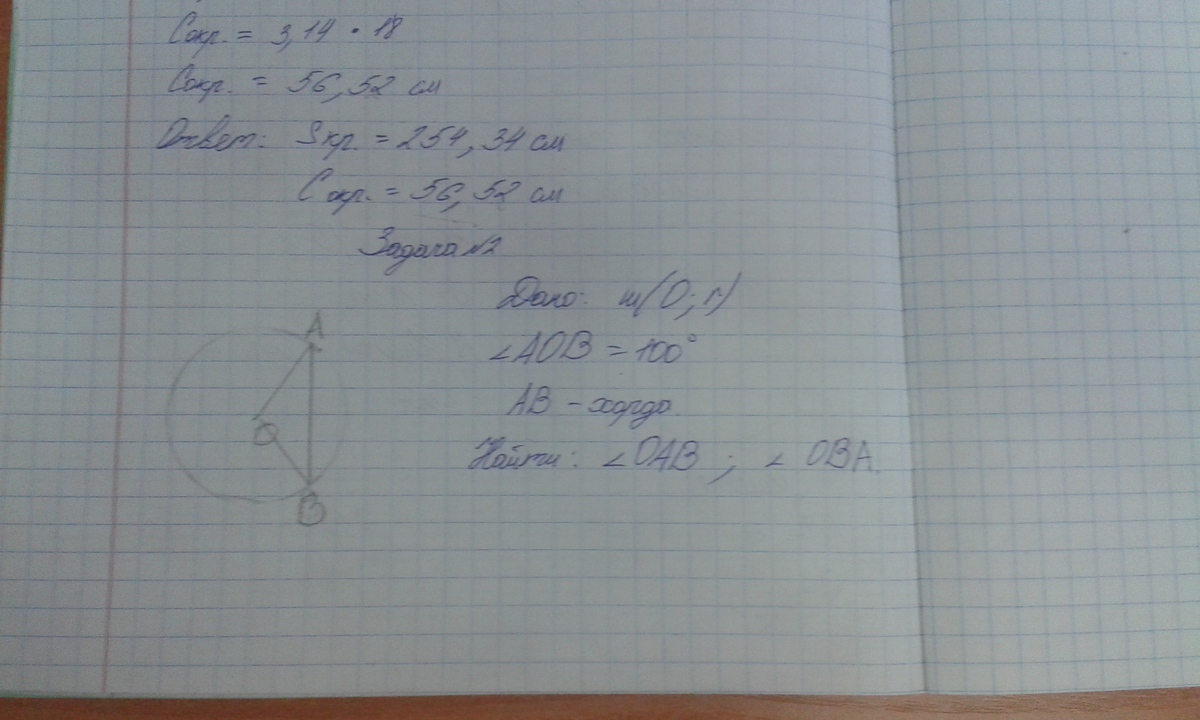 Cокр. = 3,14 · 18
Cокр. = 56,52 см
Ответ: Sкр. = 254,34 см
Cокр. = 56,52 см
Задача №2
Дано: ш(O; r)
∠AOB = 100°
AB - хорда
Найти: ∠OAB ; ∠OBA.
A
O
B